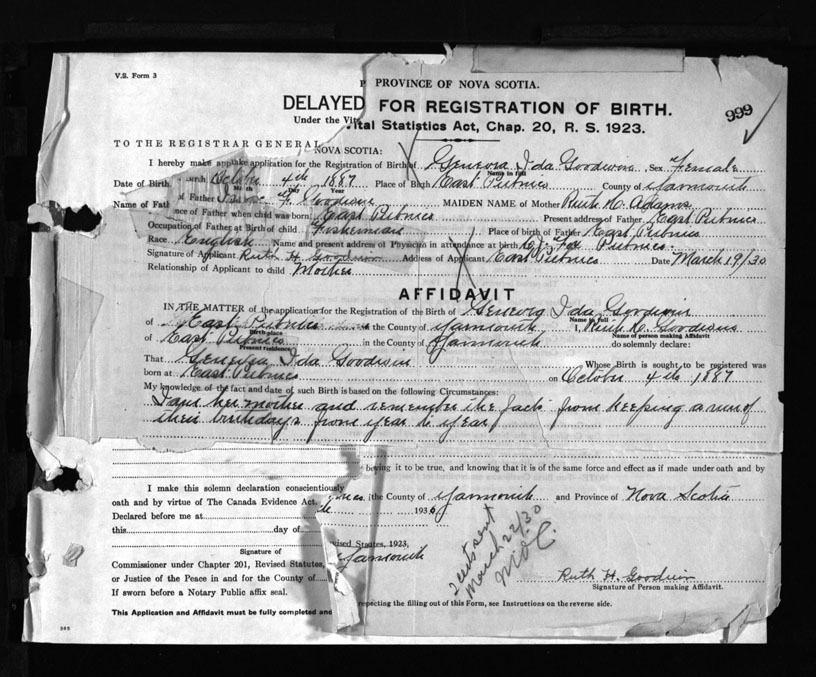 V.S. Form 3
P PROVINCE OF NOVA SCOTIA.
999
DELAYED FOR REGISTRATION OF BIRTH.
Under the Vit ital Statistics Act, Chap. 20, R. S. 1923.
TO THE REGISTRAR GENERAL NOVA SCOTIA:
I hereby make application for the Registration of Birth of Genevra Ida Goodwin Sex Female
Name in full
Date of Birth October 4th 1887 Place of Birth East Pubnico County of Yarmouth
Month Day Year
Name of Fat of Father F. Goodwin MAIDEN NAME of Mother Ruth H. Adams
nce of Father when child was born East Pubnico Present address of Father East Pubnico
Occupation of Father at Birth of child Fisherman Place of birth of Father East Pubnico
Race English Name and present address of Physician in attendance at birth Fox Pubnico.
Signature of Applicant Ruth H Goodwin Address of Applicant East Pubnico Date March 19/30
Relationship of Applicant to child Mother
AFFIDAVIT
IN THE MATTER of the application for the Registration of the Birth of Genevra Ida Goodwin
Name in full
of East Pubnico in the County of Yarmouth I, Ruth H. Goodwin
Birth place
Name of person making Affidavit
of East Pubnico in the County of Yarmouth do solemnly declare:
Present residence
That Genevra Ida Goodwin Whose Birth is sought to be registered was
born at East Pubnico on October 4th 1887
My knowledge of the fact and date of such Birth is based on the following Circumstances:
I am her mother and remember the facts from keeping a run of
their birthdays from year to year
ieving it to be true, and knowing that it is of the same force and effect as if made under oath and by
I make this solemn declaration conscientiously
oath and by virtue of The Canada Evidence Act, the County of Yarmouth and Province of Nova Scotia
Declared before me at
this day of 1930
vised Statutes, 1923,
Signature of
Yarmouth
Commissioner under Chapter 201, Revised Statutes,
or Justice of the Peace in and for the County of
If sworn before a Notary Public affix seal.
March 22/30
Ruth H. Goodwin
Signature of Person making Affidavit.
This Application and Affidavit must be fully completed and respecting the filling out of this Form, see Instructions on the reverse side.